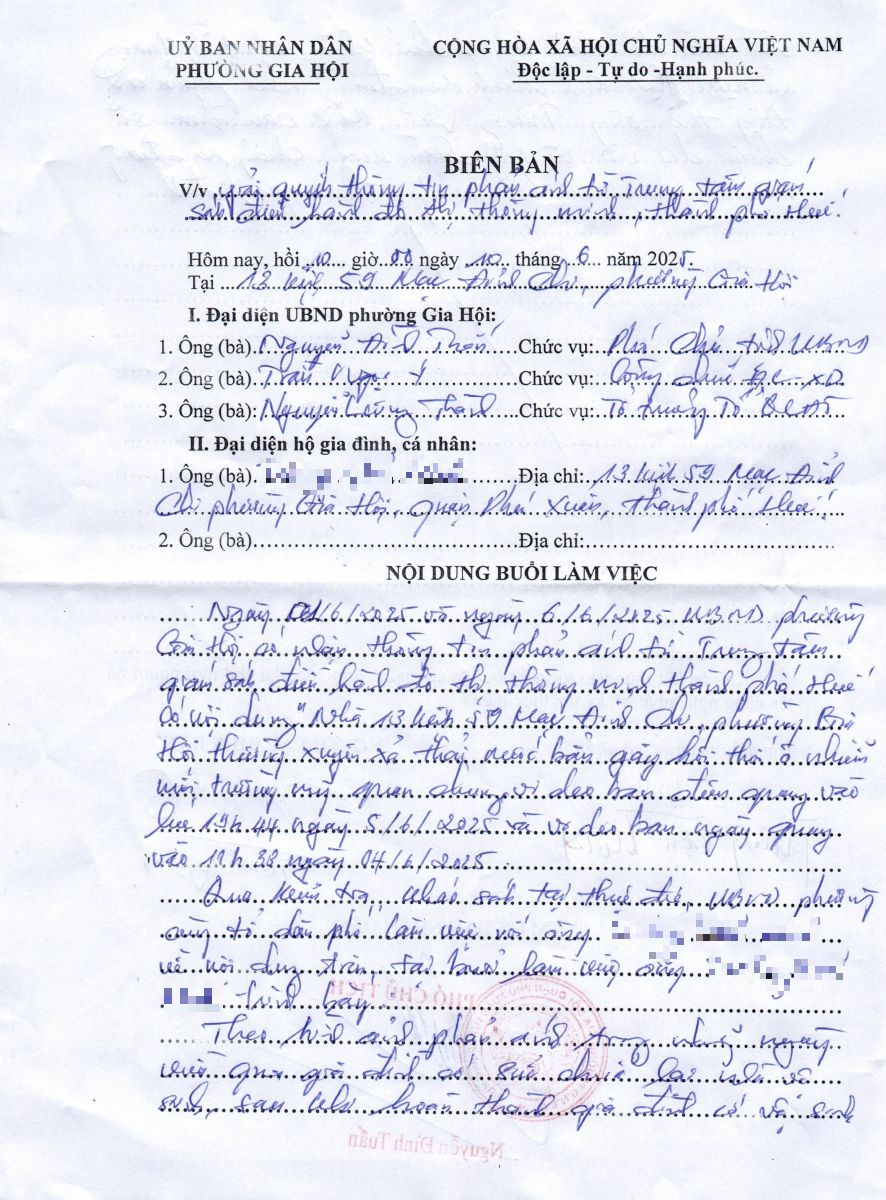 UỶ BAN NHÂN DÂN
PHƯỜNG GIA HỘI
CỘNG HÒA XÃ HỘI CHỦ NGHĨA VIỆT NAM
Độc lập - Tự do -Hạnh phúc.
BIÊN BẢN
V/v giải quyết thông tin phản ánh từ Trung tâm giám
sát điều hành đô thị thông minh, thành phố Huế.
Hôm nay, hồi 10 giờ 00 ngày 10 tháng 6 năm 2025.
Tại 13 kiệt 59 Mạc Đĩnh Chi, phường Gia Hội
I. Đại diện UBND phường Gia Hội:
1. Ông (bà). Nguyễn Đình Tuấn Chức vụ: Phó Chủ tịch UBND
2. Ông (bà). Trần Ngọc Ý Chức vụ: Công chức ĐC-XD
3. Ông (bà): Nguyễn Thành Chức vụ: Tổ trưởng Tổ
II. Đại diện hộ gia đình, cá nhân:
1. Ông (bà). Địa chỉ: 13 kiệt 59 Mạc Đĩnh
Chi phường Gia Hội, quận Phú Xuân, thành phố Huế.
2. Ông (bà) Địa chỉ:
NỘI DUNG BUỔI LÀM VIỆC
Ngày /6/2025 và ngày 6/6/2025 UBND phường
Gia Hội có nhận thông tin phản ánh từ Trung tâm
giám sát, điều hành đô thị thông minh thành phố Huế
có nội dung "Nhà 13 kiệt 59 Mạc Đĩnh Chi, phường Gia
Hội thường xuyên xả thải nước bẩn gây hôi thối ô nhiễm
môi trường mỹ quan chung, video ban đêm quay vào
lúc 19h44 ngày 5/6/2025 và video ban ngày quay
vào 11h38 ngày 04/6/2025
Qua kiểm tra, khảo sát tại thực địa, UBND phường
cùng tổ dân phố làm việc với ông
về nội dung trên, tại buổi làm việc ông
trình bày
Theo hình ảnh phản ánh trong những ngày
vừa qua gia đình có sửa chữa lại nhà vệ
sinh, sau khi hoàn thành gia đình có vệ sinh
PHÓ CHỦ TỊCH
Nguyễn Đình Tuấn